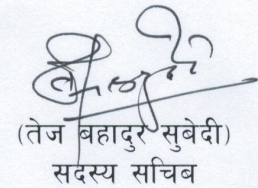 (तेज बहादुर सुबेदी)
सदस्य सचिब